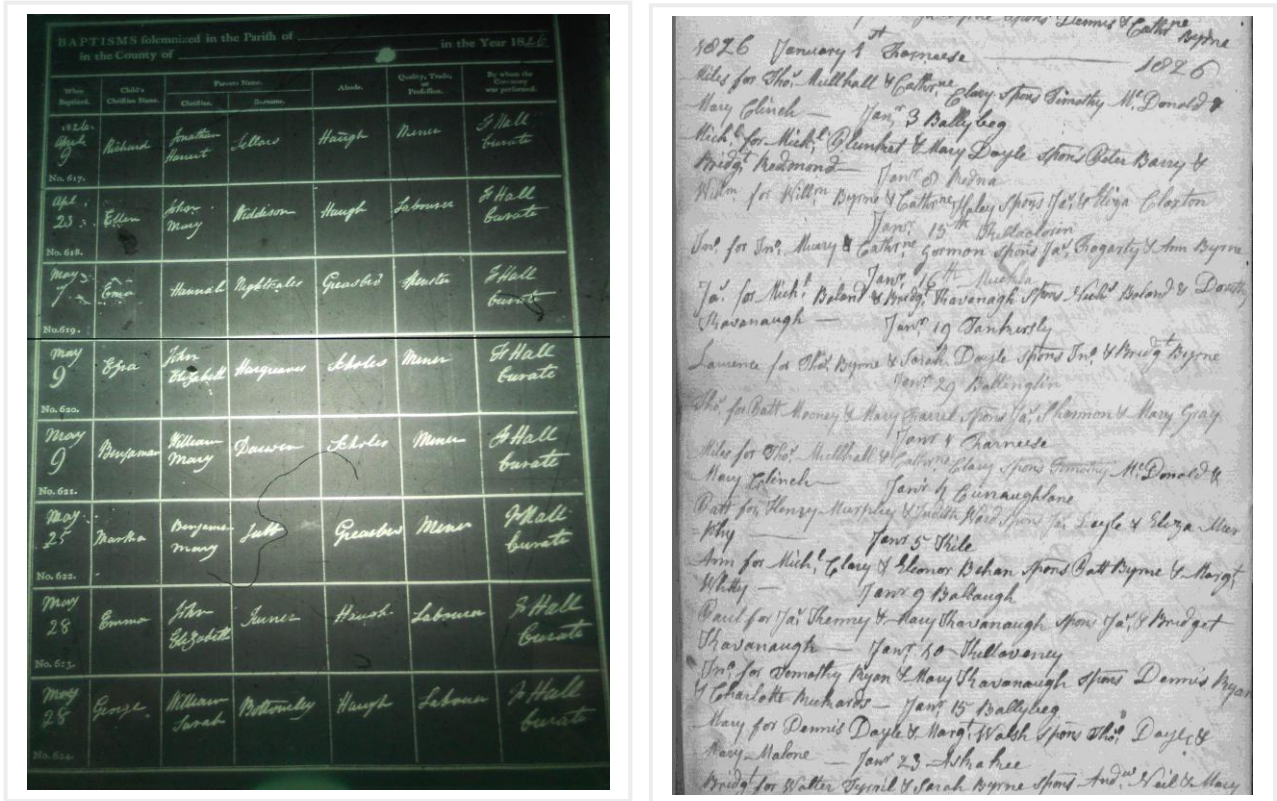 BAPTISMS solemnized in the Parish of
in the County of
in the Year 1826
When Baptized.
Child's Christian Name.
Parents Name.
Christian.
Surname.
Abode.
Quality, Trade, or Profession.
By whom the Ceremony was performed.
1826. April 9 Richard Jonathan Harriet Sellars Haugh Miner J Hall Curate
No. 617.
Apl 23 Ellen John Mary Widdison Haugh Labourer J Hall Curate
No. 618.
May 7 Ema Hannah Greasbro' Spinster J Hall Curate
No. 619.
May 9 Ezra John Elizabeth Hargreaves Scholes Miner J Hall Curate
No. 620.
May 9 Benjaman William Mary Scholes Miner J Hall Curate
No. 621.
May 25 Martha Mary Greasbro Miner J Hall Curate
No. 622.
May 28 Emma John Elizabeth Turner Haugh Labourer J Hall Curate
No. 623.
May 28 George William Sarah Bottomley Haugh Labourer J Hall Curate
No. 624.
Spons Dennis & Cathrne Byrne
1826 January 1st 1826
Miles for Thos. Mullhall & Cathrne Clary spons Timothy McDonald &
Mary Clinch — Janr 3 Ballybeg
Michl. for Michl. Plunket & Mary Doyle spons Peter Barry &
Bridgt Redmond — Janr 8
Willm for Willm Byrne & Cathrne Haley spons Jas. & Eliza Claxton
Janr. 15th
Jno. for Jno. & Cathrne Gormon spons Jas. Fogarty & Ann Byrne
Janr. 16th
Jas. for Michl. Boland & Bridgt. Kavanagh spons Boland &
Kavanaugh — Janr 19 Tankersly
Laurence for Thos. Byrne & Sarah Doyle spons Jno. & Bridgt Byrne
Janr 29 Ballinglin
Thos. for Batt Mooney & Mary Farrel spons Jas. Shannon & Mary Gray
Janr 1
Miles for Thos. Mullhall & Cathrne Clary spons Timothy McDonald &
Mary Clinch — Janr 4
Patt for Henry Murphy & Judith Ward spon Jas. Doyle & Eliza Mur
phy — Janr 5
Ann for Michl. Clary & Eleonor Behan spons Patt Byrne & Margt
Whitty — Janr 9
Paul for Jas. & Mary Kavanaugh spons Jas. & Bridget
Kavanaugh — Janr. 10
Jno. for Timothy Ryan & Mary Kavanaugh spons Dennis Ryan
& Charlotte — Janr 15 Ballybeg
Mary for Dennis Doyle & Margt. Walsh spons Thos. Doyle &
Mary Malone — Janr 23
Bridgt for Walter & Sarah Byrne spons Andw Neil & Mary